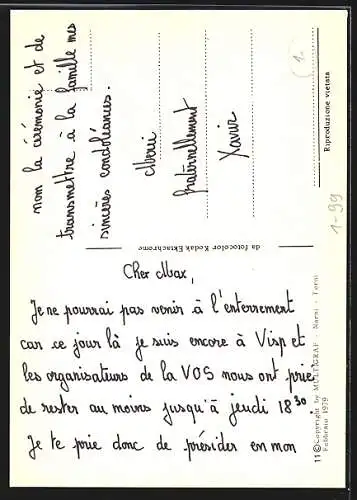 Cher Max,
Je ne pourrai pas venir à l'enterrement
car ce jour là je suis encore à Visp et
les organisateurs de la VOS nous ont prié
de rester au moins jusqu'à jeudi 18³⁰
Je te prie donc de présider en mon
nom la cérémonie et de
transmettre à la famille mes
sincères condoléances.
Merci
fraternellement
Xavier
da fotocolor Kodak Ektachrome
11 © Copyright by MULTIGRAF - Narni - Terni
Febbraio 1979
Riproduzione vietata
1-99
1-